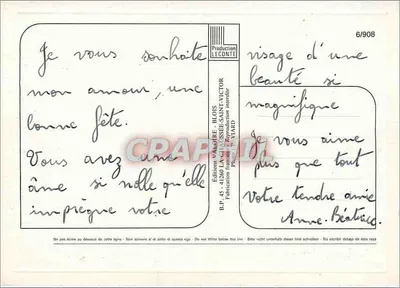 Je vous souhaite
mon amour, une
bonne fête.
Vous avez une
âme si noble qu'elle
imprègne votre
Production
LECONTE
Editions VALOIRE - BLOIS
B.P. 45 - 41260 LA CHAUSSÉE-SAINT-VICTOR
Fabrication française - Reproduction interdite
VIARD
6/908
visage d'une
beauté si
magnifique
Je vous aime
plus que tout
Votre tendre amie
Anne. Béatrice.
CPAPHIL
Ne pas écrire au dessous de cette ligne - Non scrivere al di sotto di questa riga - Do not Write below this line - Bitte nicht unterhalb dieser linie schreiben - No escribir debajo de esta raya